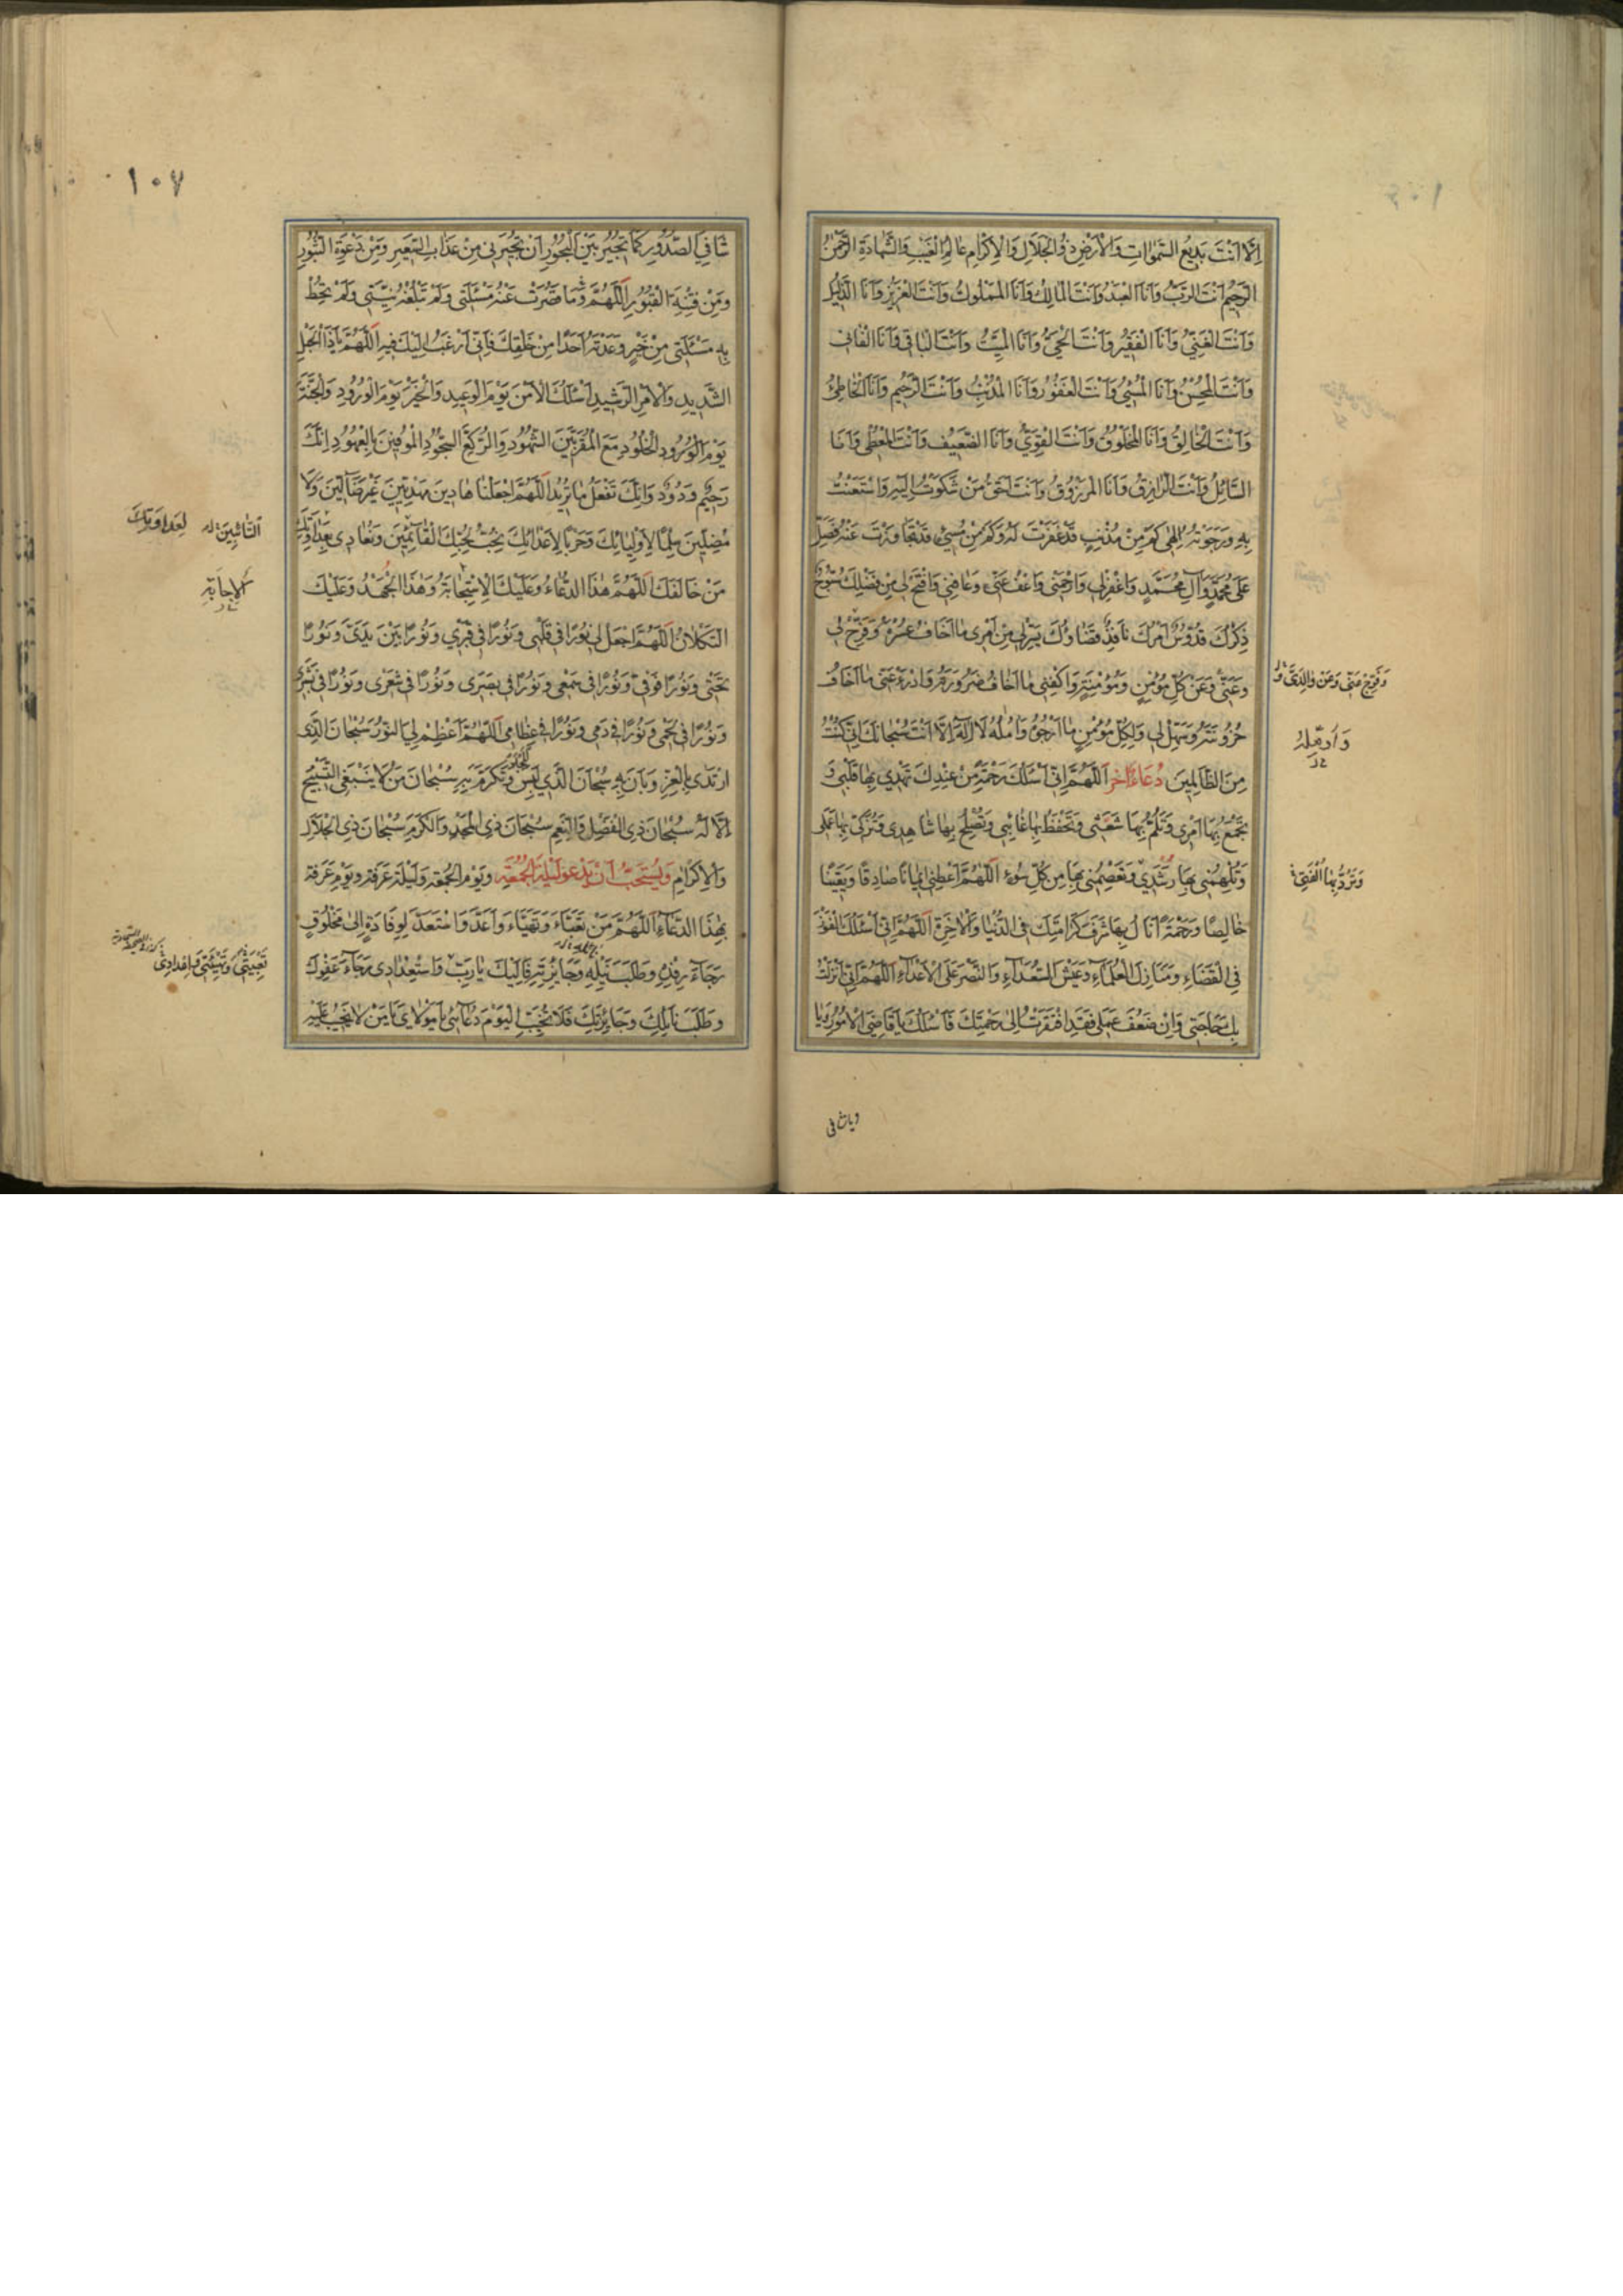 اِلَّا اَنْتَ بَدِيعُ السَّمٰوَاتِ وَالْاَرْضِ ذُو الْجَلَالِ وَالْاِكْرَامِ عَالِمُ الْغَيْبِ وَالشَّهَادَةِ الرَّحْمٰنُ
الرَّحِيمُ اَنْتَ الرَّبُّ وَاَنَا الْعَبْدُ وَاَنْتَ الْمَالِكُ وَاَنَا الْمَمْلُوكُ وَاَنْتَ الْعَزِيزُ وَاَنَا الذَّلِيلُ
وَاَنْتَ الْغَنِيُّ وَاَنَا الْفَقِيرُ وَاَنْتَ الْحَيُّ وَاَنَا الْمَيِّتُ وَاَنْتَ الْبَاقِي وَاَنَا الْفَانِي
وَاَنْتَ الْمُحْسِنُ وَاَنَا الْمُسِيءُ وَاَنْتَ الْغَفُورُ وَاَنَا الْمُذْنِبُ وَاَنْتَ الرَّحِيمُ وَاَنَا الْخَاطِئُ
وَاَنْتَ الْخَالِقُ وَاَنَا الْمَخْلُوقُ وَاَنْتَ الْقَوِيُّ وَاَنَا الضَّعِيفُ وَاَنْتَ الْمُعْطِي وَاَنَا
السَّائِلُ وَاَنْتَ الرَّازِقُ وَاَنَا الْمَرْزُوقُ وَاَنْتَ اَحَقُّ مَنْ شَكَوْتُ اِلَيْهِ وَاسْتَعَنْتُ
بِهِ وَرَجَوْتُهُ اِلٰهِي كَمْ مِنْ مُذْنِبٍ قَدْ غَفَرْتَ لَهُ وَكَمْ مِنْ مُسِيءٍ قَدْ تَجَاوَزْتَ عَنْهُ فَصَلِّ
عَلَى مُحَمَّدٍ وَآلِ مُحَمَّدٍ وَاغْفِرْ لِي وَارْحَمْنِي وَاعْفُ عَنِّي وَعَافِنِي وَافْتَحْ لِي مِنْ فَضْلِكَ سُبُّوحٌ
ذِكْرُكَ قُدُّوسٌ اَمْرُكَ نَافِذٌ قَضَاؤُكَ يَسِّرْ لِي مِنْ اَمْرِي مَا اَخَافُ عُسْرَهُ وَفَرِّجْ لِي
وَعَنِّي وَعَنْ كُلِّ مُؤْمِنٍ وَمُؤْمِنَةٍ وَاكْفِنِي مَا اَخَافُ ضَرُورَتَهُ وَادْرَءْ عَنِّي مَا اَخَافُ
حُزُونَتَهُ وَسَهِّلْ لِي وَلِكُلِّ مُؤْمِنٍ مَا اَرْجُوهُ وَآمُلُهُ لَا اِلٰهَ اِلَّا اَنْتَ سُبْحَانَكَ اِنِّي كُنْتُ
مِنَ الظَّالِمِينَ دُعَاءٌ آخَر اَللّٰهُمَّ اِنِّي اَسْئَلُكَ رَحْمَةً مِنْ عِنْدِكَ تَهْدِي بِهَا قَلْبِي وَ
تَجْمَعُ بِهَا اَمْرِي وَتَلُمُّ بِهَا شَعَثِي وَتَحْفَظُ بِهَا غَائِبِي وَتُصْلِحُ بِهَا شَاهِدِي وَتُزَكِّي بِهَا عَمَلِي
وَتُلْهِمُنِي بِهَا رُشْدِي وَتَعْصِمُنِي بِهَا مِنْ كُلِّ سُوءٍ اَللّٰهُمَّ اَعْطِنِي اِيمَانًا صَادِقًا وَيَقِينًا
خَالِصًا وَرَحْمَةً اَنَالُ بِهَا شَرَفَ كَرَامَتِكَ فِي الدُّنْيَا وَالْآخِرَةِ اَللّٰهُمَّ اِنِّي اَسْئَلُكَ الْفَوْزَ
فِي الْقَضَاءِ وَمَنَازِلَ الْعُلَمَاءِ وَعَيْشَ السُّعَدَاءِ وَالنَّصْرَ عَلَى الْاَعْدَاءِ اَللّٰهُمَّ اِنِّي اَنْزَلْتُ
بِكَ حَاجَتِي وَاِنْ ضَعُفَ عَمَلِي فَقَدِ افْتَقَرْتُ اِلَى رَحْمَتِكَ فَاَسْئَلُكَ يَا قَاضِيَ الْاُمُورِ وَيَا
وَفَرِّجْ عَنِّي وَعَنْ وَالِدَيَّ وَ
وَتَرُدُّ بِهَا اُلْفَتِي
ويا شافي
١٠٧
شَافِيَ الصُّدُورِ كَمَا تُجِيرُ بَيْنَ الْبُحُورِ اَنْ تُجِيرَنِي مِنْ عَذَابِ السَّعِيرِ وَمِنْ دَعْوَةِ الثُّبُورِ
وَمِنْ فِتْنَةِ الْقُبُورِ اَللّٰهُمَّ وَمَا قَصُرَتْ عَنْهُ مَسْئَلَتِي وَلَمْ تَبْلُغْهُ نِيَّتِي وَلَمْ تُحِطْ
بِهِ مَسْئَلَتِي مِنْ خَيْرٍ وَعَدْتَهُ اَحَدًا مِنْ خَلْقِكَ فَاِنِّي اَرْغَبُ اِلَيْكَ فِيهِ اَللّٰهُمَّ يَا ذَا الْحَبْلِ
الشَّدِيدِ وَالْاَمْرِ الرَّشِيدِ اَسْئَلُكَ الْاَمْنَ يَوْمَ الْوَعِيدِ وَالْخَيْرَ يَوْمَ الْوُرُودِ وَالْجَنَّةَ
يَوْمَ الْوُرُودِ الْخُلُودِ مَعَ الْمُقَرَّبِينَ الشُّهُودِ وَالرُّكَّعِ السُّجُودِ الْمُوفِينَ بِالْعُهُودِ اِنَّكَ
رَحِيمٌ وَدُودٌ وَاِنَّكَ تَفْعَلُ مَا تُرِيدُ اَللّٰهُمَّ اجْعَلْنَا هَادِينَ مَهْدِيِّينَ غَيْرَ ضَالِّينَ وَلَا
مُضِلِّينَ سِلْمًا لِاَوْلِيَائِكَ وَحَرْبًا لِاَعْدَائِكَ نُحِبُّ بِحُبِّكَ الْقَائِمِينَ وَنُعَادِي بِعَدَاوَتِكَ
مَنْ خَالَفَكَ اَللّٰهُمَّ هٰذَا الدُّعَاءُ وَعَلَيْكَ الْاِسْتِجَابَةُ وَهٰذَا الْجُهْدُ وَعَلَيْكَ
التُّكْلَانُ اَللّٰهُمَّ اجْعَلْ لِي نُورًا فِي قَلْبِي وَنُورًا فِي قَبْرِي وَنُورًا بَيْنَ يَدَيَّ وَنُورًا
تَحْتِي وَنُورًا فَوْقِي وَنُورًا فِي سَمْعِي وَنُورًا فِي بَصَرِي وَنُورًا فِي شَعْرِي وَنُورًا فِي بَشَرِي
وَنُورًا فِي لَحْمِي وَنُورًا فِي دَمِي وَنُورًا فِي عِظَامِي اَللّٰهُمَّ اَعْظِمْ لِيَ النُّورَ سُبْحَانَ الَّذِي
ارْتَدَى بِالْعِزِّ وَبَانَ بِهِ سُبْحَانَ الَّذِي لَبِسَ الْمَجْدَ وَتَكَرَّمَ بِهِ سُبْحَانَ مَنْ لَا يَنْبَغِي التَّسْبِيحُ
اِلَّا لَهُ سُبْحَانَ ذِي الْفَضْلِ وَالنِّعَمِ سُبْحَانَ ذِي الْمَجْدِ وَالْكَرَمِ سُبْحَانَ ذِي الْجَلَالِ
وَالْاِكْرَامِ وَيُسْتَحَبُّ اَنْ يَدْعُوَ لَيْلَةَ الْجُمُعَةِ وَيَوْمَ الْجُمُعَةِ وَلَيْلَةَ عَرَفَةَ وَيَوْمَ عَرَفَةَ
بِهٰذَا الدُّعَاءِ اَللّٰهُمَّ مَنْ تَعَبَّاَ وَتَهَيَّاَ وَاَعَدَّ وَاسْتَعَدَّ لِوِفَادَةٍ اِلَى مَخْلُوقٍ
رَجَاءَ رِفْدِهِ وَطَلَبَ نَيْلِهِ وَجَائِزَتِهِ فَاِلَيْكَ يَا رَبِّ وَاسْتِعْدَادِي رَجَاءَ عَفْوِكَ
وَطَلَبَ نَائِلِكَ وَجَائِزَتِكَ فَلَا تُخَيِّبِ الْيَوْمَ دُعَائِي يَا مَوْلَايَ يَا مَنْ لَا يَخِيبُ عَلَيْهِ
التَّائِبِينَ
لِعَدَاوَتِكَ
الْاِجَابَةُ
تَعْبِيَتِي وَتَهْيِئَتِي وَاِعْدَادِي